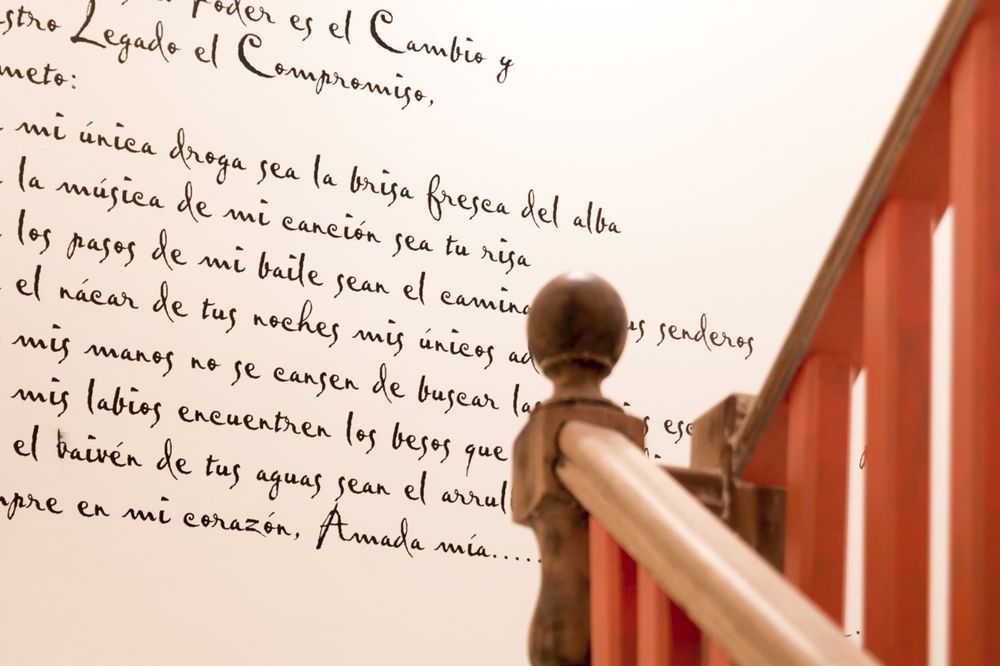 Poder es el Cambio y
Legado el Compromiso,
mi única droga sea la brisa fresca del alba
la música de mi canción sea tu risa
los pasos de mi baile sean el senderos
el nácar de tus noches mis únicos
mis manos no se cansen de buscar
mis labios encuentren los besos que
el vaivén de tus aguas sean el
en mi corazón, Amada mía.....